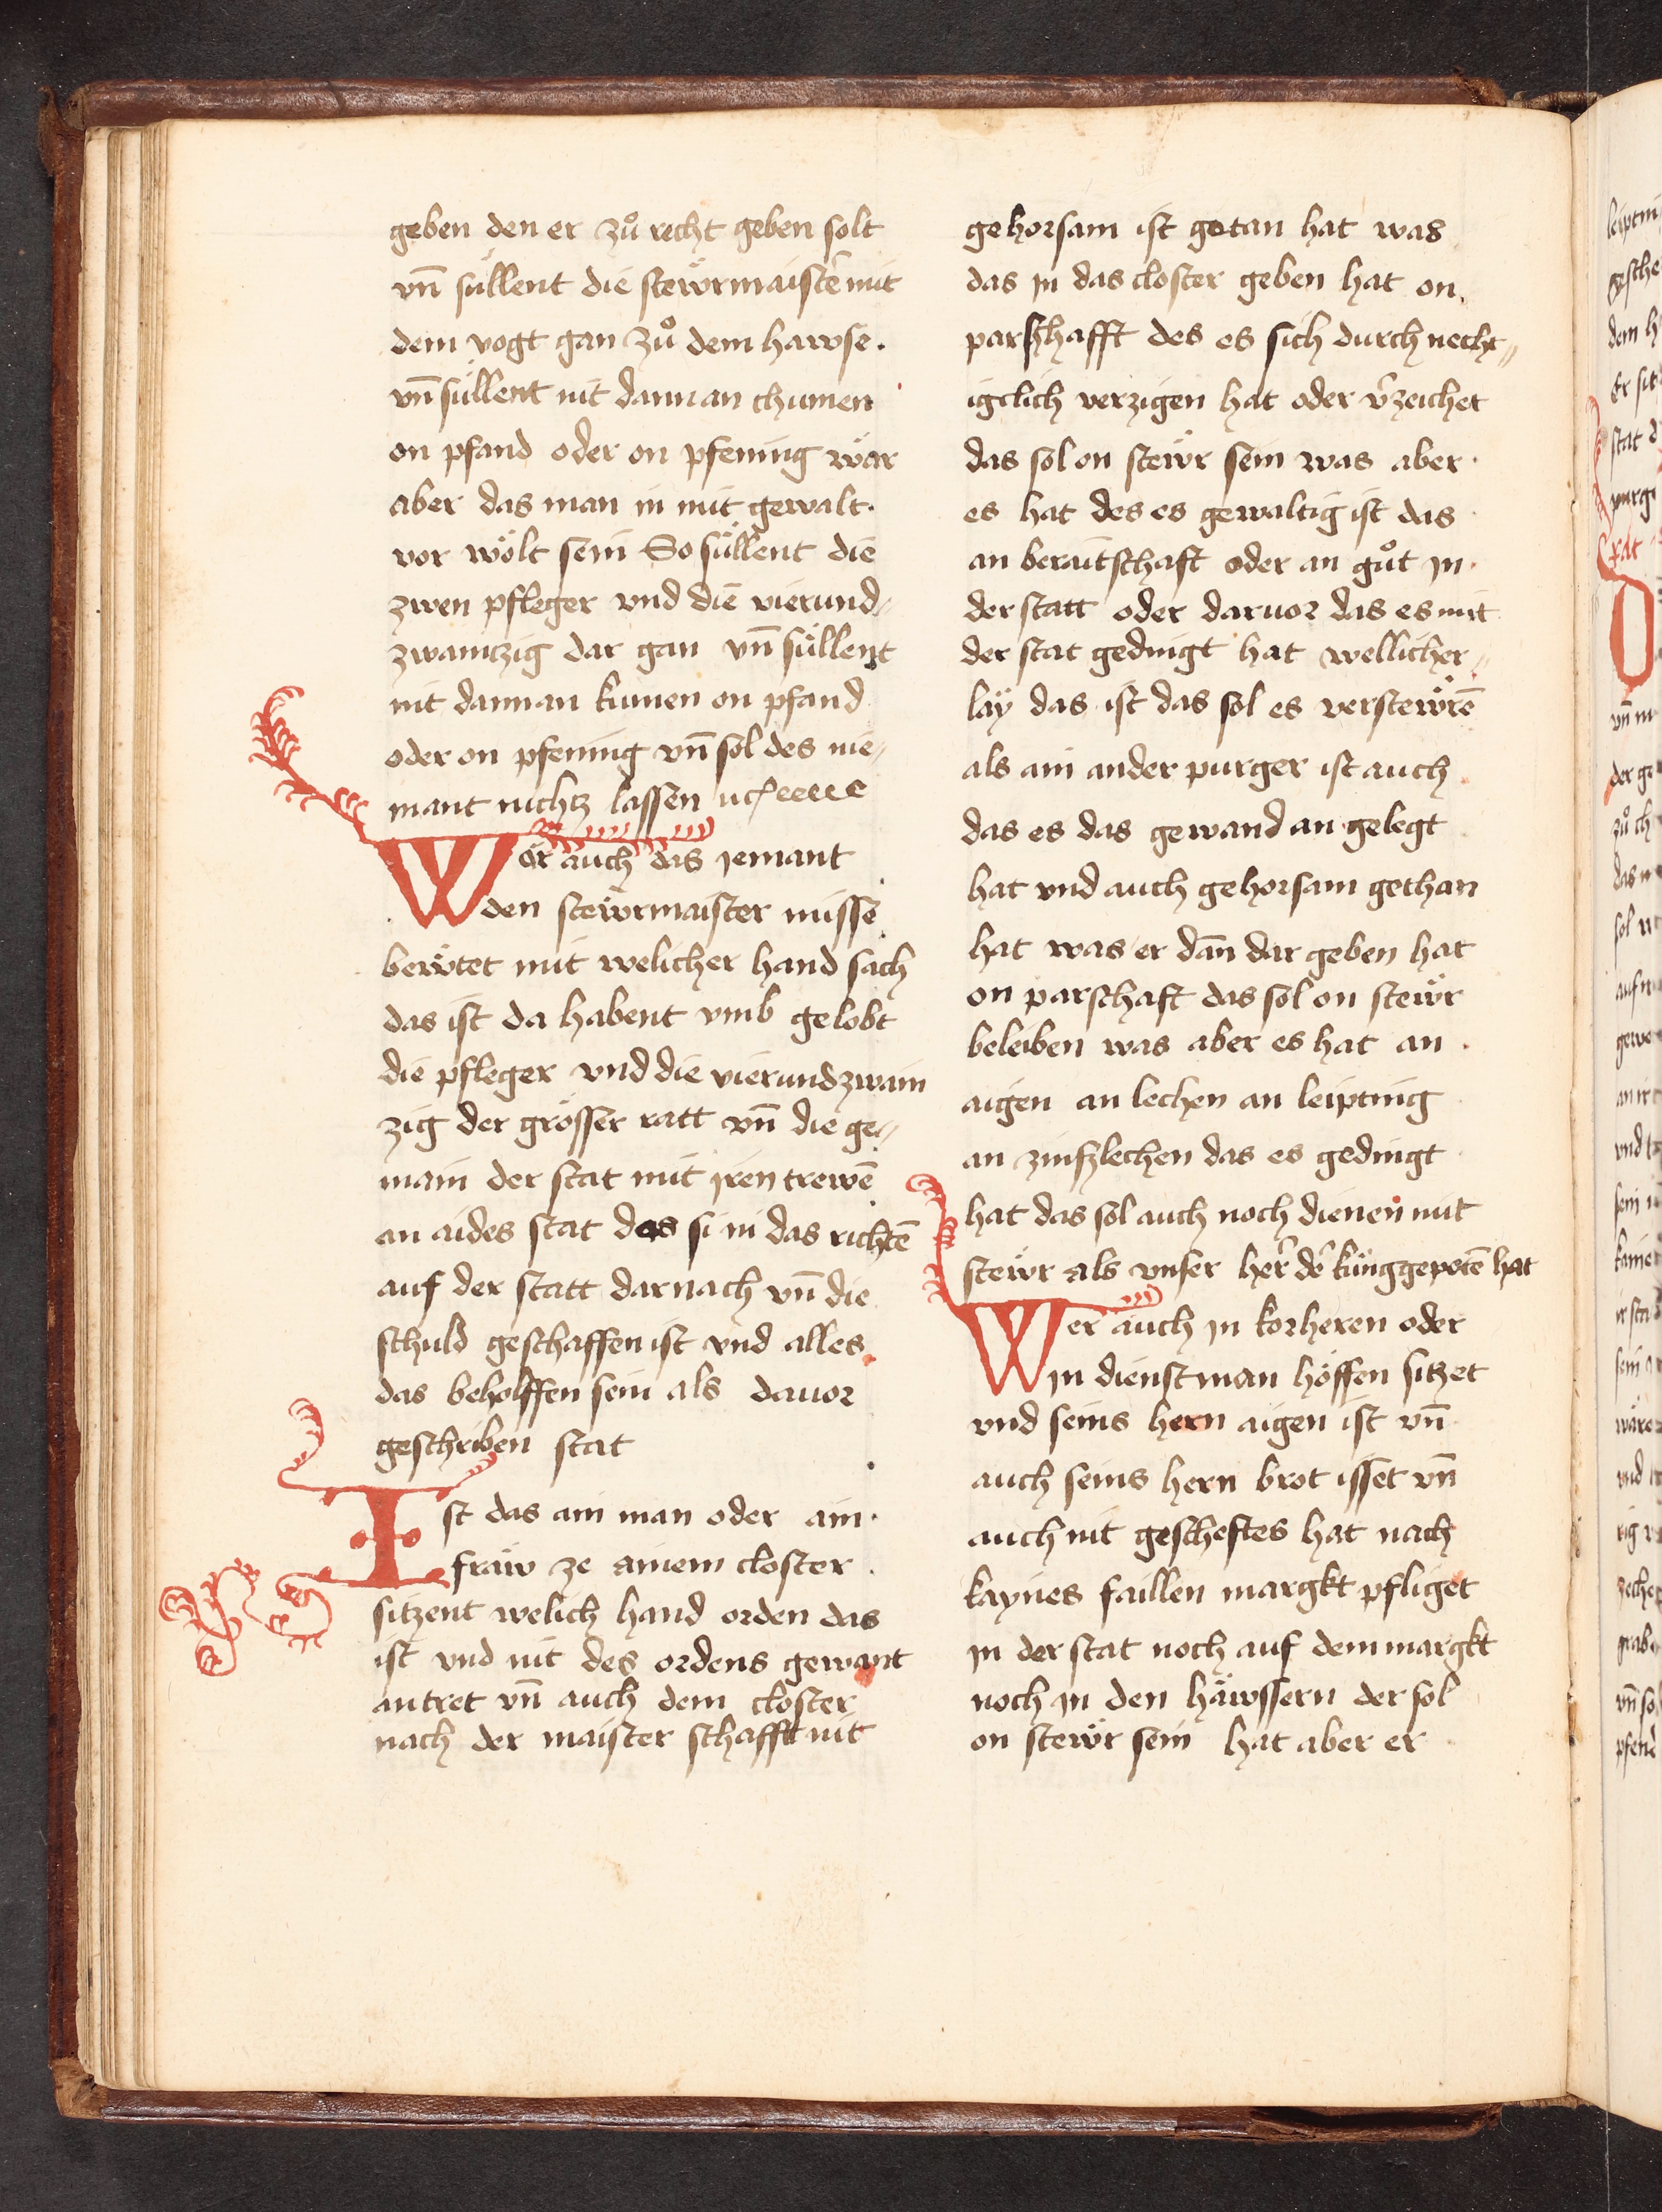 geben den er zuͦ recht geben solt
vn̄ süllent die stewrmaist̄ mit
dem vogt gan zuͦ dem hawse.
vn̄ süllent nit dannan chumen
on pfand oder on pfening wär
aber das man in mit gewalt.
vor wölt sein So süllent die
zwen pfleger vnd die vierund⸗
zwainczig dar gan vn̄ süllent
nit dannan kumen on pfand
oder on pfening vn̄ sol des nie⸗
mant nichtz lassen
Wër auch das iemant
den stewrmaister misse
bewtet mit welicher hand sach
das ist da habent vmb gelobt
die pfleger vnd die vierundzwain
zig der grösser ratt vn̄ die ge⸗
main der stat mit iren trewē
an aides stat das si in das richtē
auf der statt darnach vn̄ die
schuld geschaffen ist vnd alles
das beholffen sein als dauor
geschriben stat
Ist das ain man oder ain
fraw ze ainem closter
sitzent welich hand orden das
ist vnd nit des ordens gewant
antret vn̄ auch dem closter
nach der maister schafft nit
gehorsam ist getan hat was
das in das closter geben hat on
parschhafft des es sich durchnecht⸗
igclich verzigen hat oder v̄zeichet
das sol on stewr sein was aber
es hat des es gewaltig ist das
an beraitschaft oder an guͦt in
der statt oder daruor das es mit
der stat gedingt hat wellicher⸗
lay das ist das sol es verstewrē
als ain ander purger ist auch
das es das gewand an gelegt
hat vnd auch gehorsam gethan
hat was er dan̄ dar geben hat
on parschaft das sol on stewr
beleiben was aber es hat an
aigen an lechen an leipting
an zinszlechen das es gedingt
hat das sol auch noch dienen mit
stewr als vnser her̄ d̄ küng gepotē hat
Wer auch in korheren oder
in dienstman höffen sitzet
vnd seins hern aigen ist vn̄
auch seins hern brot isset vn̄
auch nit gescheftes hat nach
kaynes faillen margkt pfliget
in der stat noch auf dem margkt
noch in den häwssern der sol
on stewr sein hat aber er